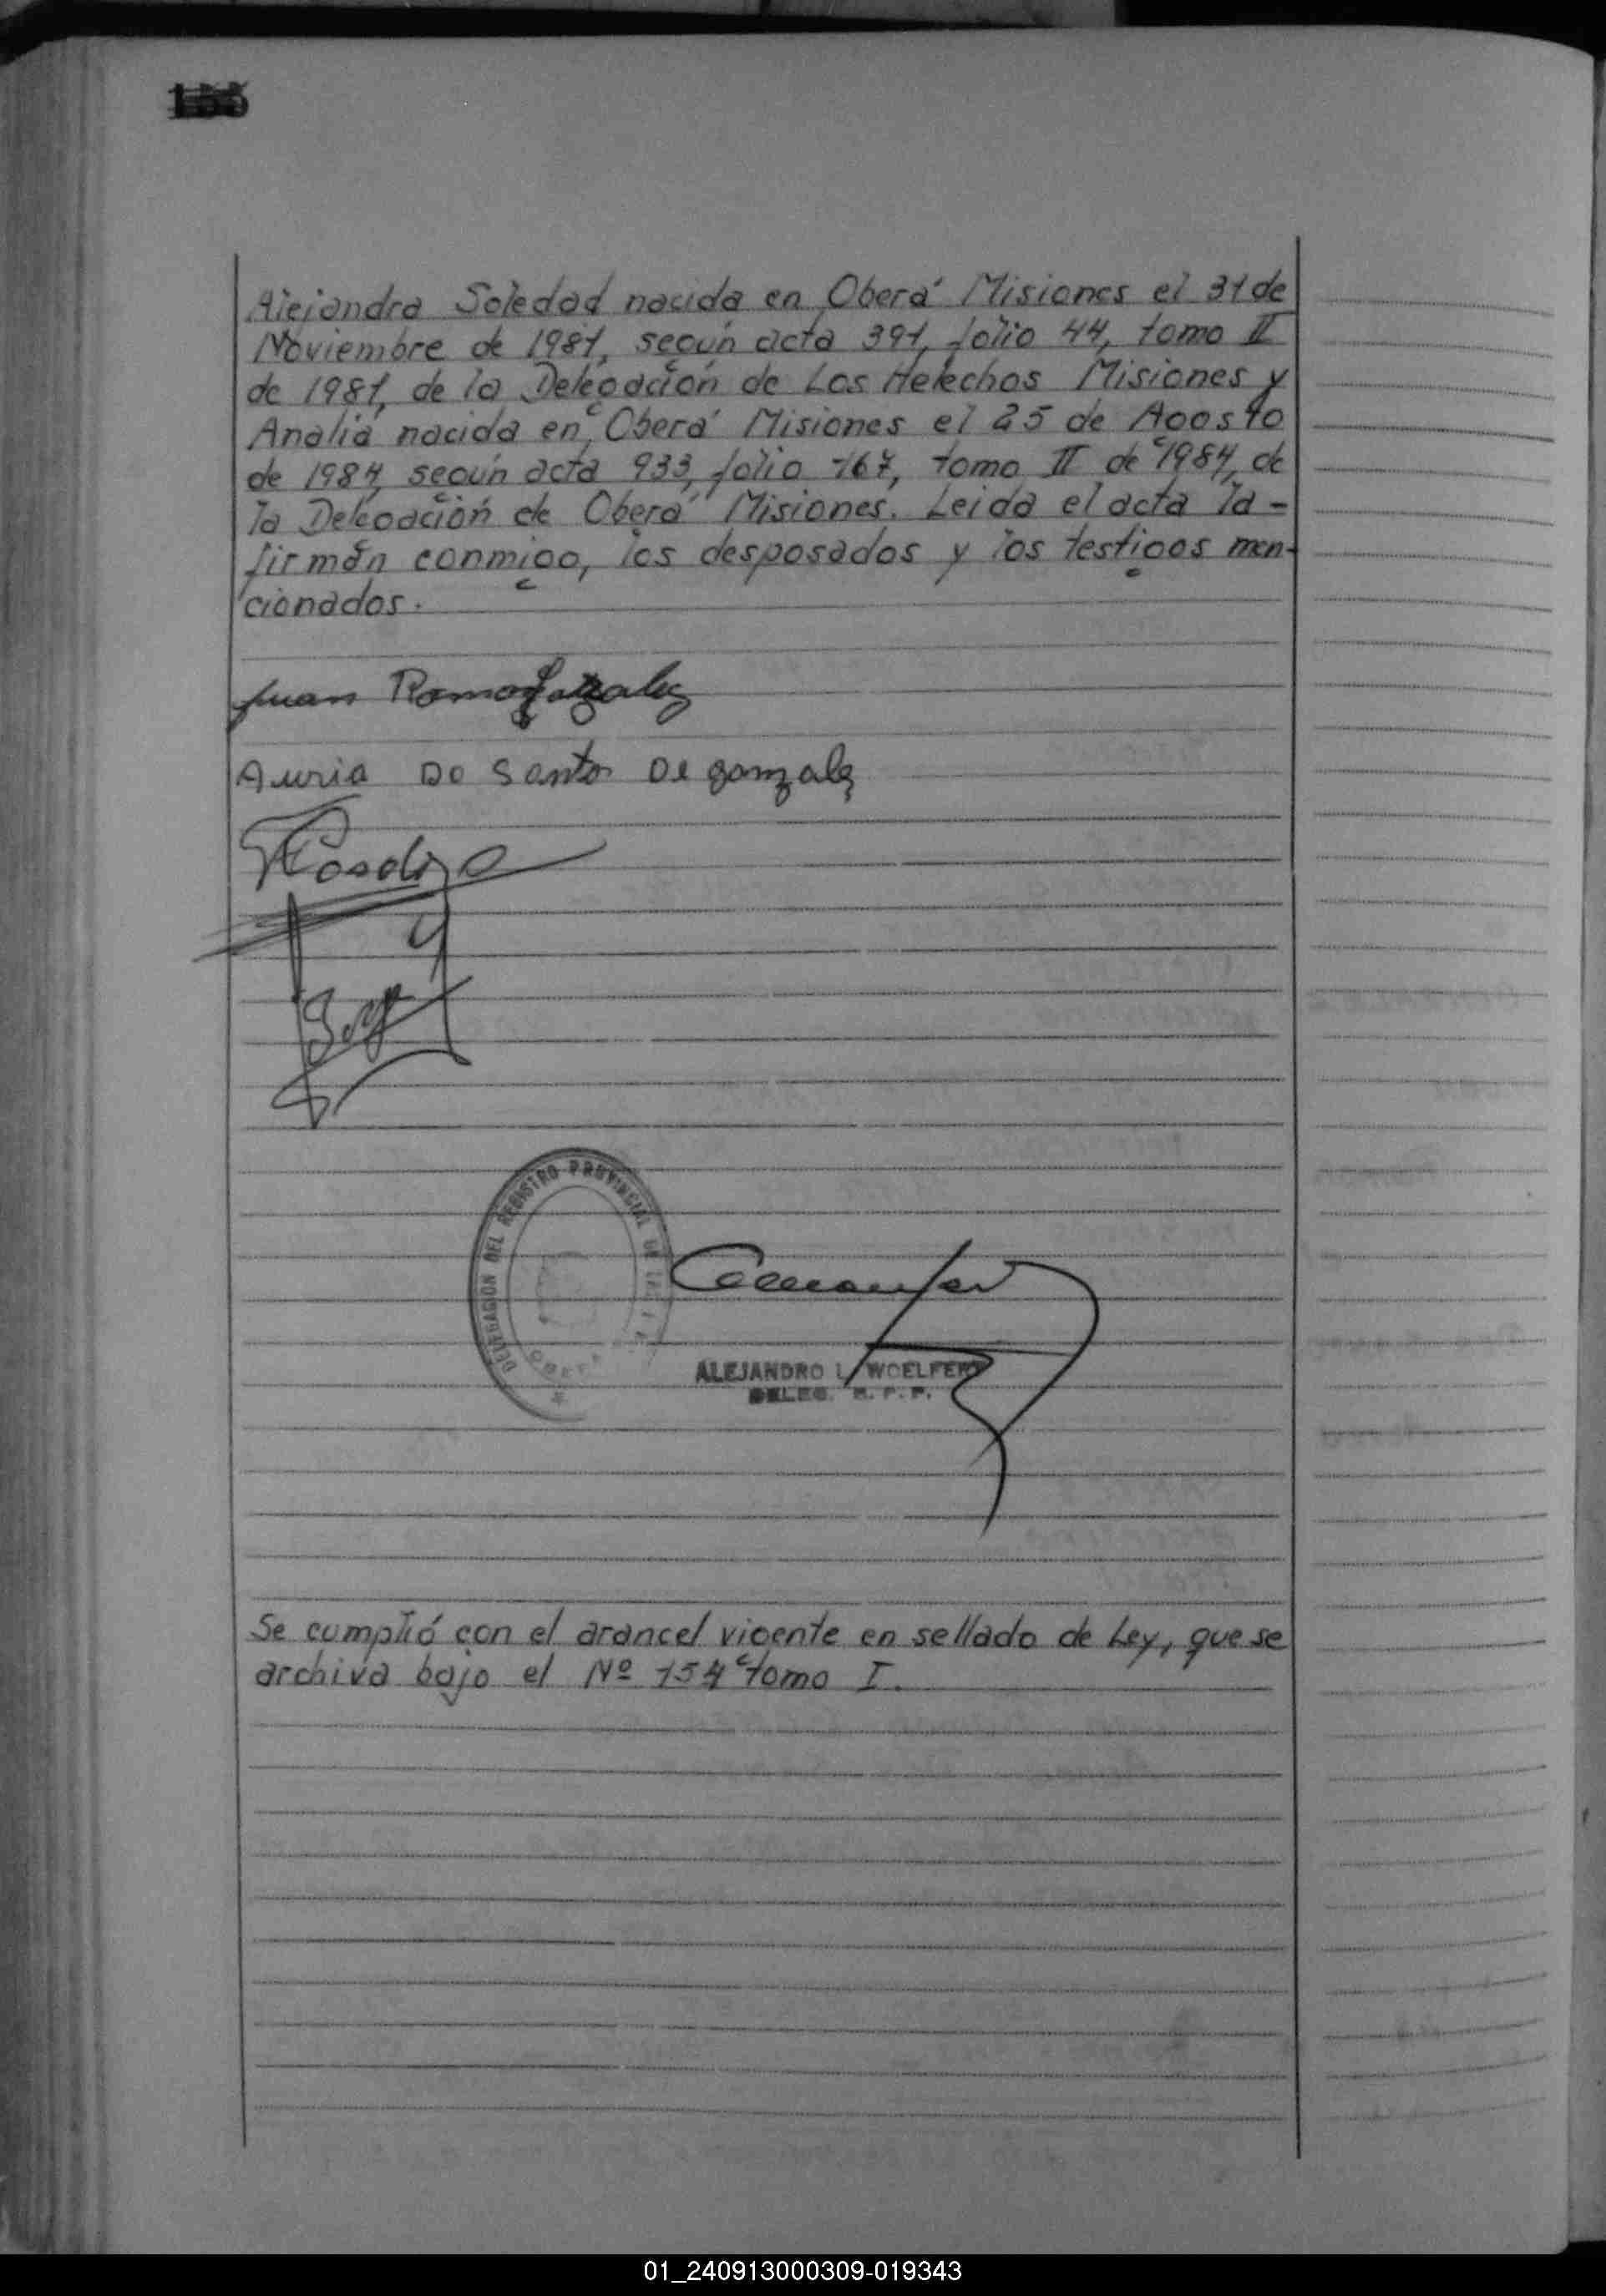 155
Alejandra Soledad nacida en Oberá Misiones el 31 de
Noviembre de 1981, según acta 391, folio 44, tomo II
de 1981, de la Delegación de Los Helechos Misiones y
Analia nacida en Oberá Misiones el 25 de Agosto
de 1984, según acta 933, folio 167, tomo II de 1984, de
la Delegación de Oberá Misiones. Leida el acta la-
firmán conmigo, los desposados y los testigos men-
cionados.
Juan Ramon Gonzalez
Auria Do Santos De gonzalez
DELEGACION DEL REGISTRO PROVINCIAL DE LAS
ALEJANDRO L. WOELFERT
DELEG. R. P. P.
Se cumplió con el arancel vigente en sellado de Ley, que se
archiva bajo el Nº 154 tomo I.
01_240913000309-019343